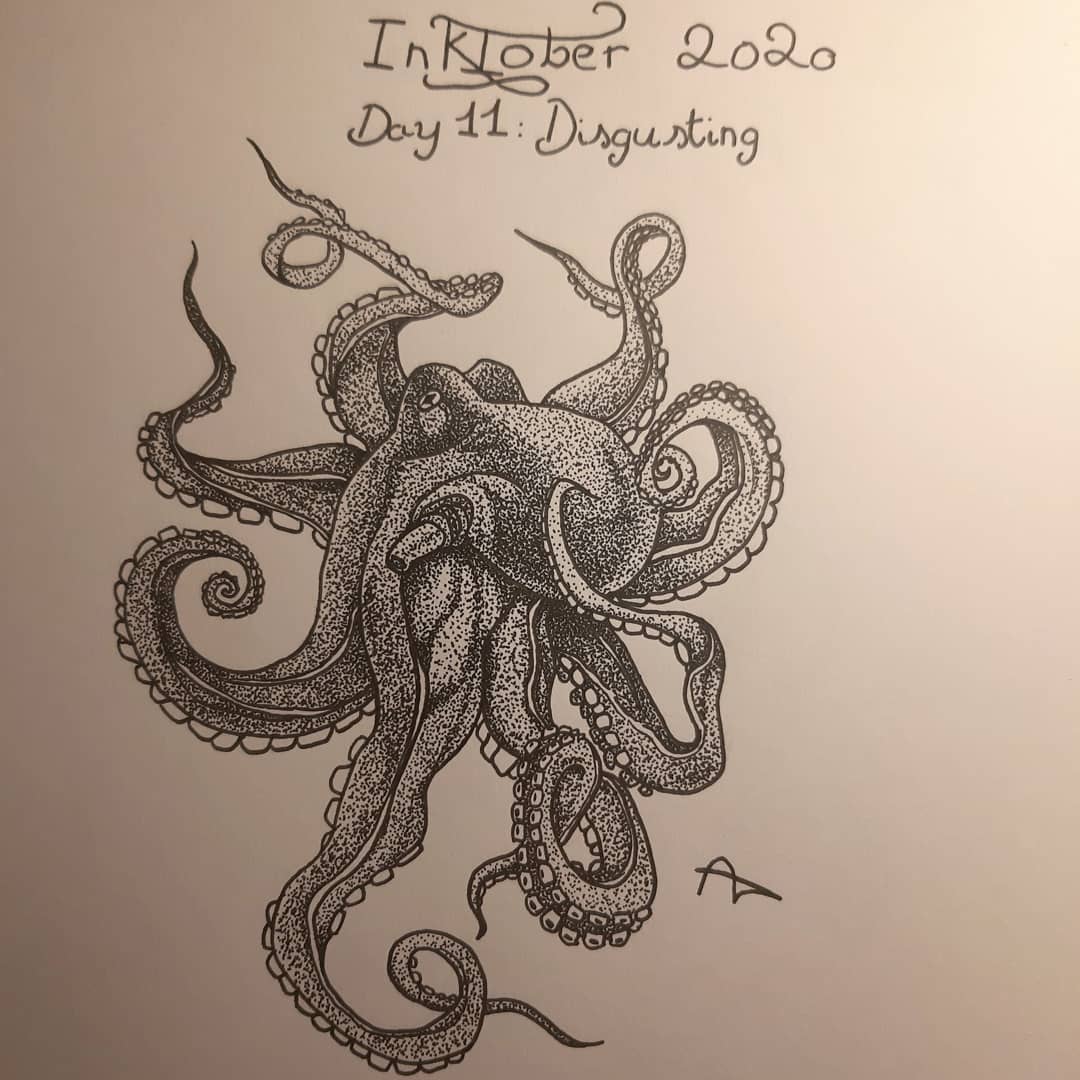 InkTober 2020
Day 11: Disgusting